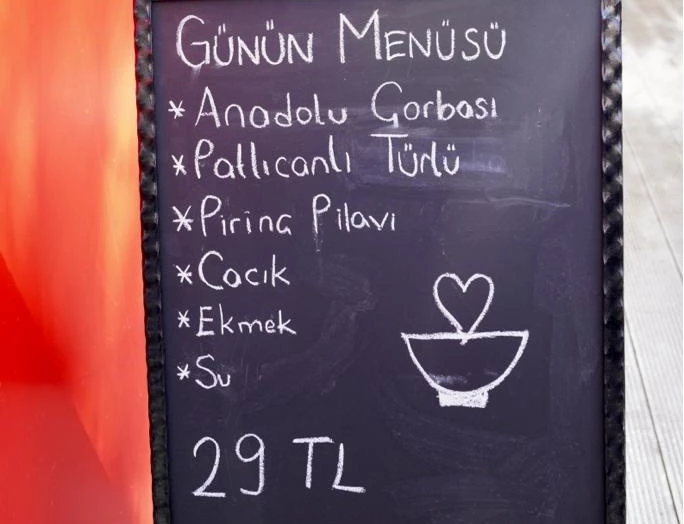 GÜNÜN MENÜSÜ
* Anadolu Çorbası
* Patlıcanlı Türlü
* Pirinç Pilavı
* Cacık
* Ekmek
* Su
29 TL